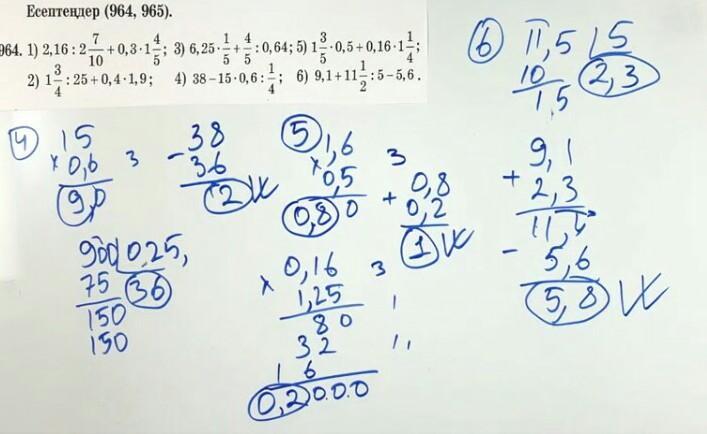 Есептеңдер (964, 965).
964. 1) 2,16 : 2 7/10 + 0,3 · 1 4/5; 3) 6,25 · 1/5 + 4/5 : 0,64; 5) 1 3/5 · 0,5 + 0,16 · 1 1/4;
2) 1 3/4 : 25 + 0,4 · 1,9; 4) 38 − 15 · 0,6 : 1/4; 6) 9,1 + 11 1/2 : 5 − 5,6.
4
15
× 0,6
9,0
3
38
− 36
2
900 0,25,
75 36
150
150
5
1,6
× 0,5
0,80
3
0,8
+ 0,2
1
0,16
× 1,25
80
32
16
0,2000
3
6
11,5 5
10 2,3
1,5
9,1
+ 2,3
11,4
− 5,6
5,8